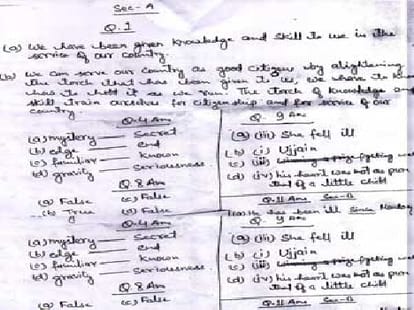 Sec-A
Q.1
(a) We have been given knowledge and skill to use in the
service of our country.
(b) We can serve our country as good citizens by
the torch that has been given to us, we have to
how to hold it as we run. The torch of knowledge and
skill train ourselves for citizenship and for service of our
country.
Q.4 Ans
(a) mystery — Secret
(b) edge — end
(c) familiar — Known
(d) gravity — Seriousness
Q.8 Ans
(a) False (c) False
(b) True (d) False
Q.9 Ans
(a) (iii) She fell ill
(b) (i) Ujjain
(c) (iii)
(d) (iv) his heart was not as
that of a little child
Q.11 Ans Sec-B
has been ill since Monday
Q.4 Ans
(a) mystery — Secret
(b) edge — end
(c) familiar — Known
(d) gravity — Seriousness
Q.8 Ans
(a) False (c) False
Q.9 Ans
(a) (iii) She fell ill
(b) (i) Ujjain
(c) (iii)
(d) (iv) his heart was not as
that of a little child
Q.11 Ans Sec-B